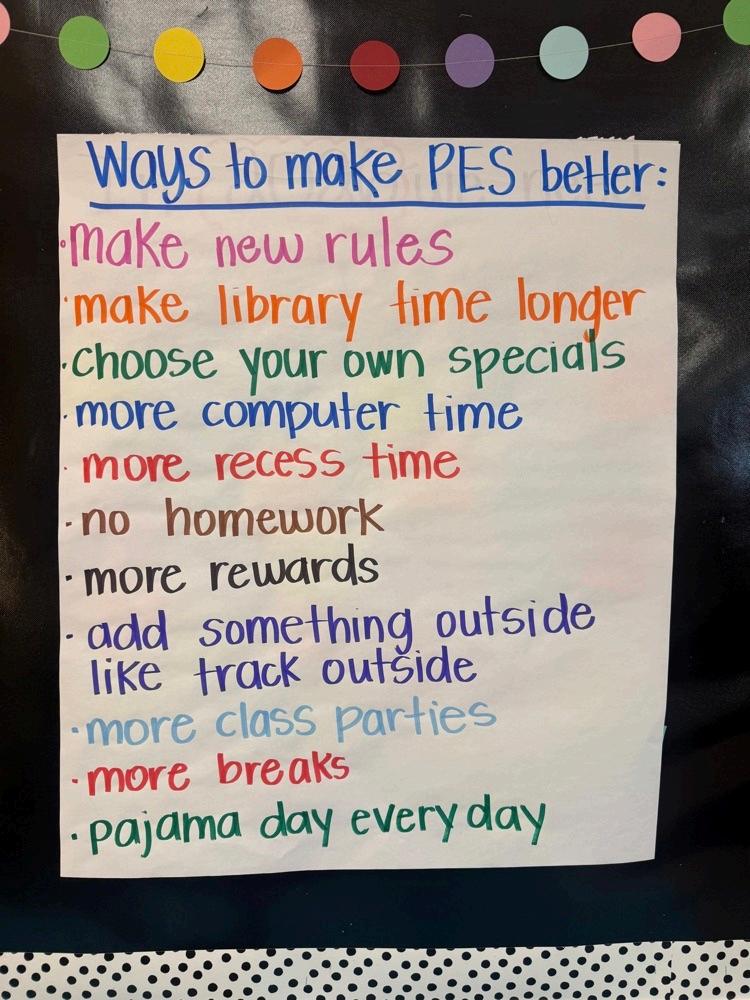 Ways to make PES better:
·make new rules
·make library time longer
·choose your own specials
·more computer time
·more recess time
·no homework
·more rewards
·add something outside
like track outside
·more class parties
·more breaks
·pajama day every day